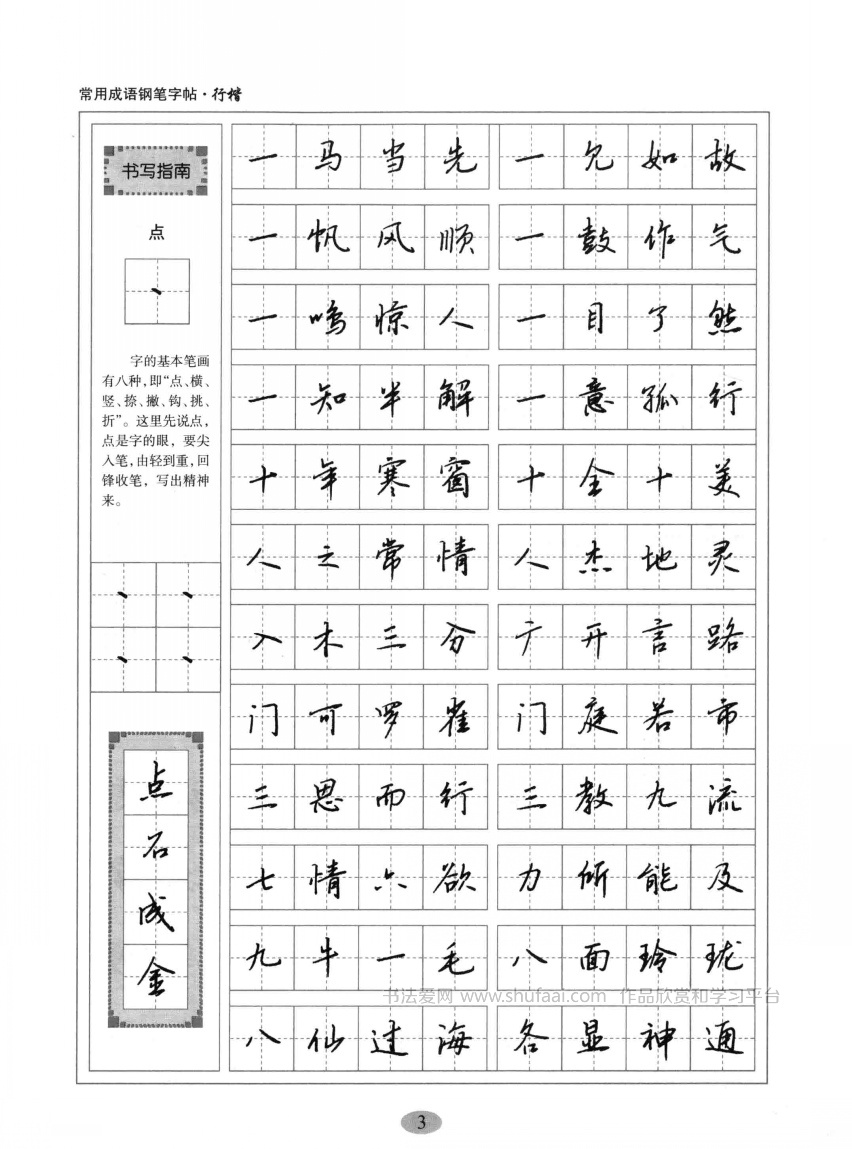 常用成语钢笔字帖·行楷
书写指南
点
丶
字的基本笔画
有八种,即“点、横、
竖、捺、撇、钩、挑、
折”。这里先说点,
点是字的眼，要尖
入笔,由轻到重,回
锋收笔，写出精神
来。
丶 丶
丶 丶
点
石
成
金
一马当先 一见如故
一帆风顺 一鼓作气
一鸣惊人 一目了然
一知半解 一意孤行
十年寒窗 十全十美
人之常情 人杰地灵
入木三分 广开言路
门可罗雀 门庭若市
三思而行 三教九流
七情六欲 力所能及
九牛一毛 八面玲珑
书法爱网 www.shufaai.com 作品欣赏和学习平台
八仙过海 各显神通
3